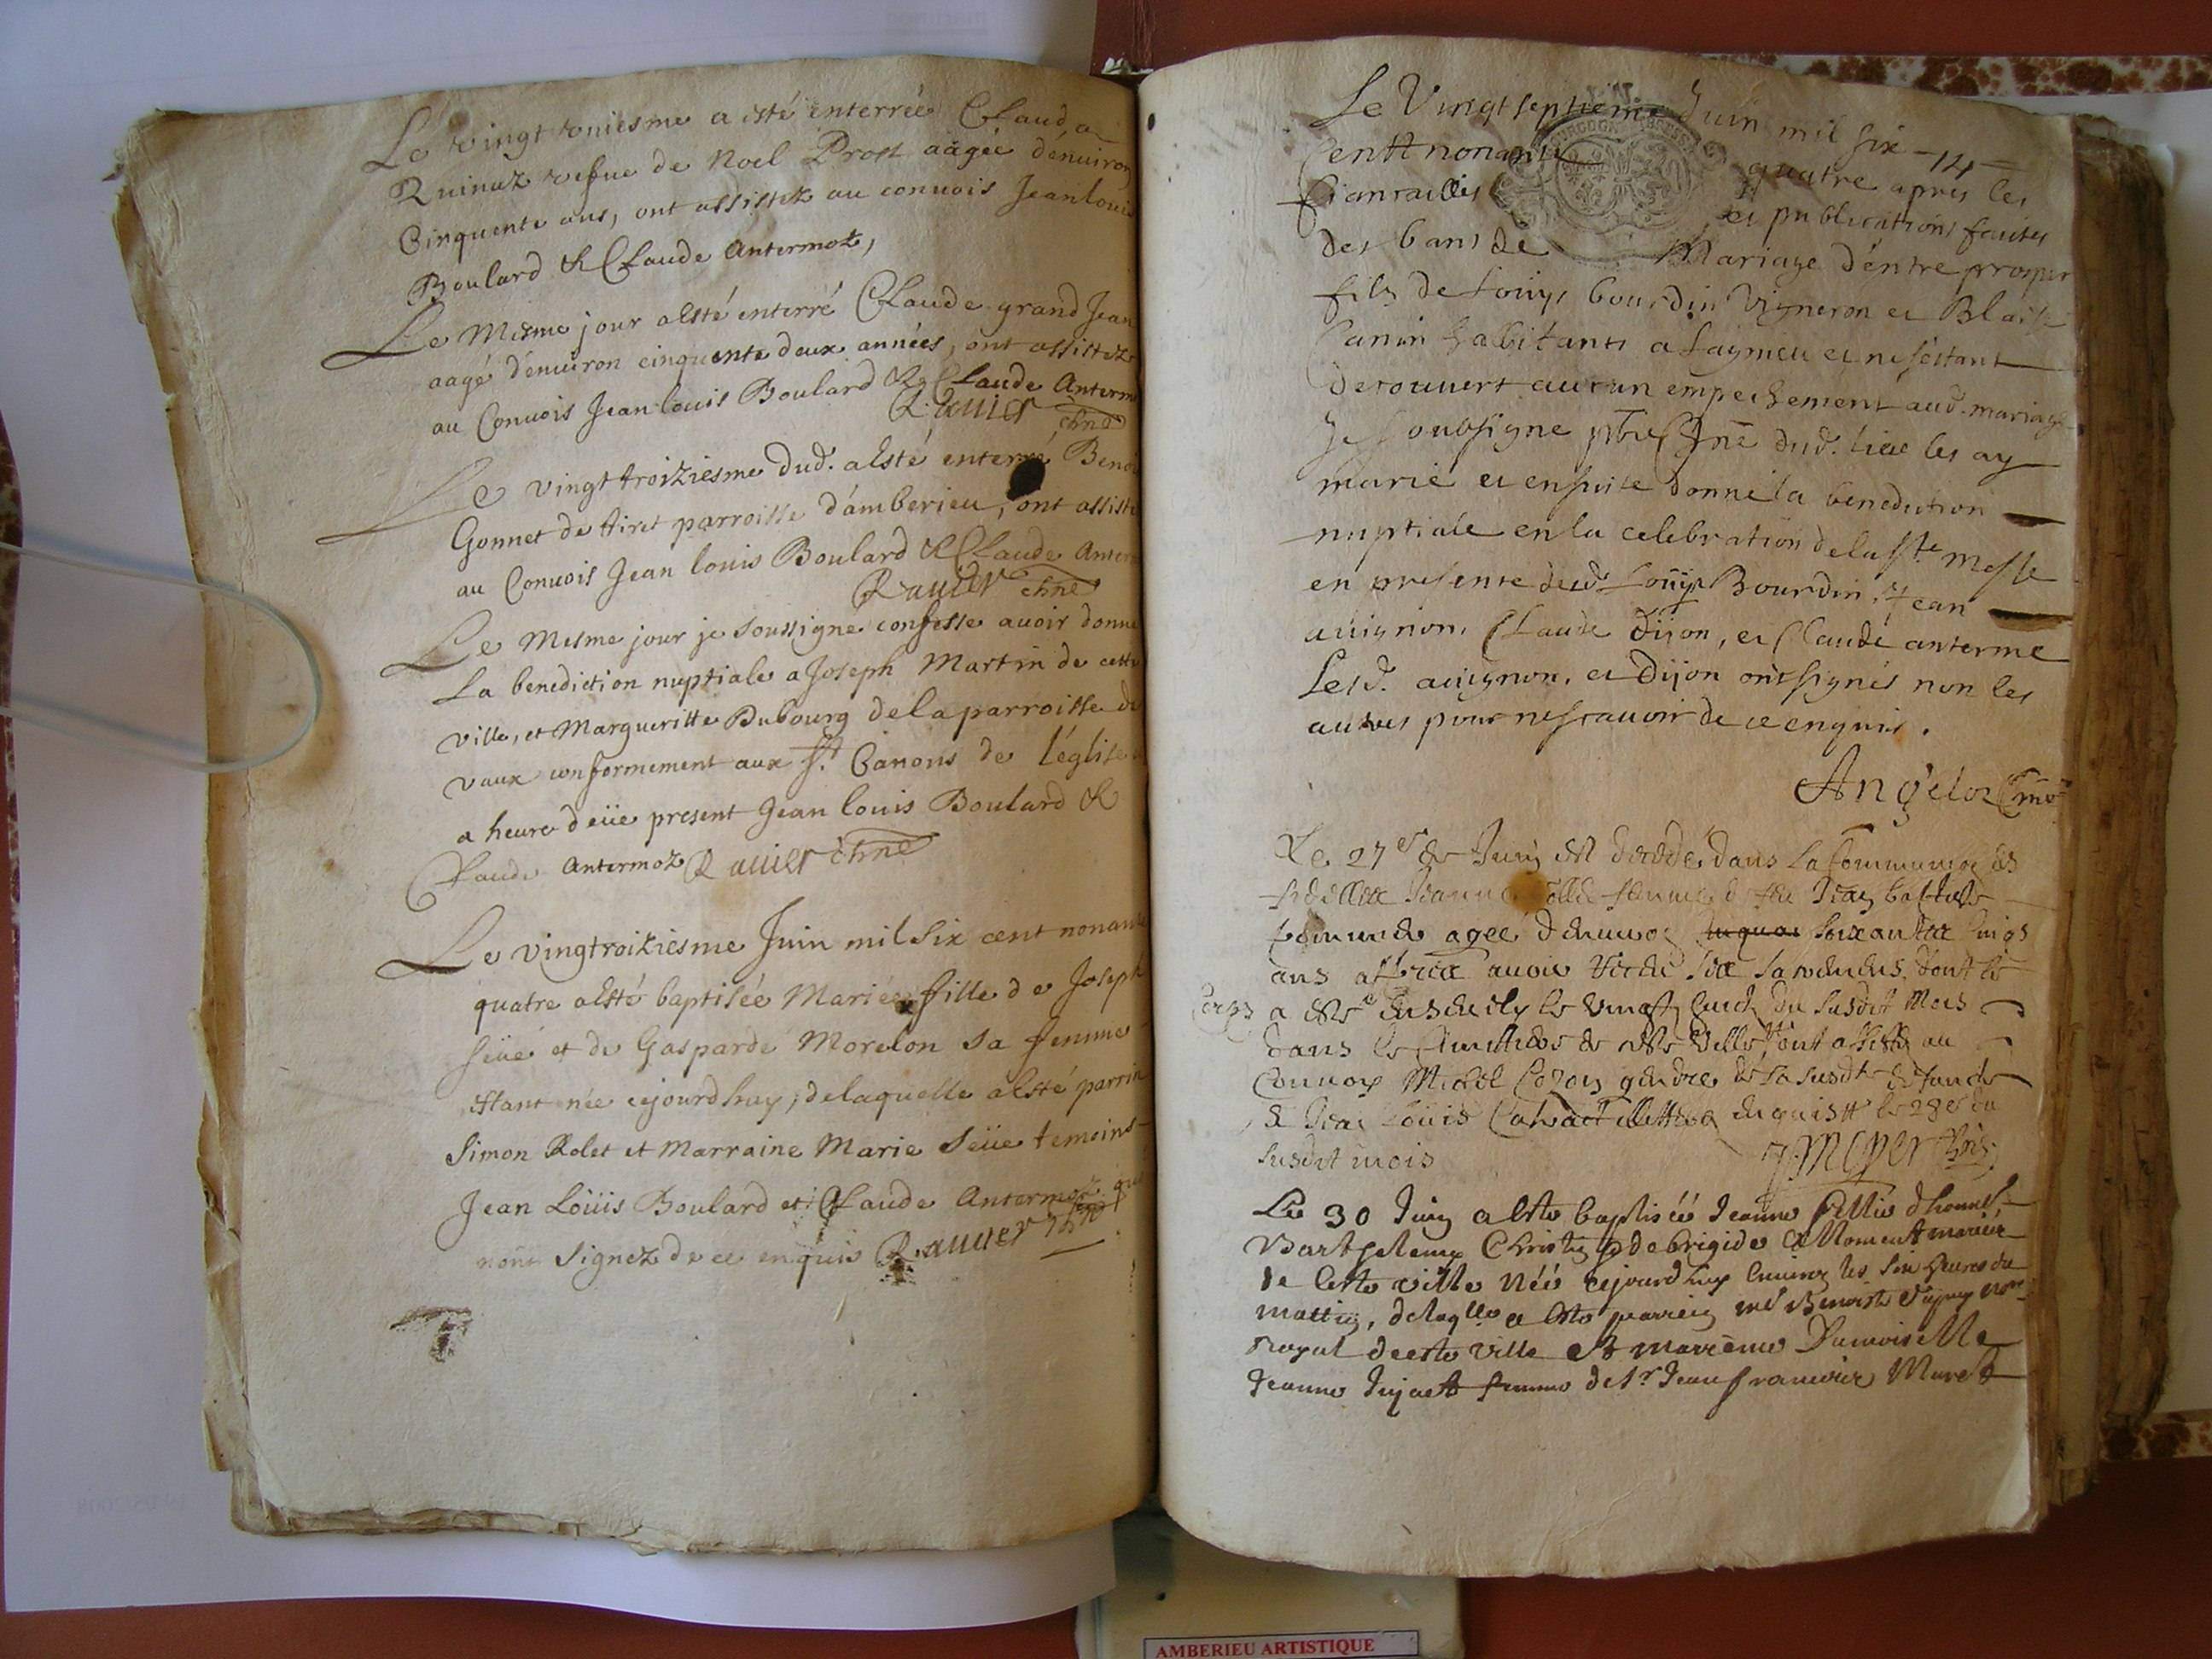 Le vingt vniesme a esté enterrée Clauda
Quinaz vefue de Noel Prost aâgée d'enuiron
Cinquente ans, ont assistez au conuois Jean louis
Boulard & Claude Antermoz,
Le Mesme jour a esté enterré Claude grand Jean
aagé d'enuiron cinquente deux années, ont assistez
au Conuois Jean louis Boulard & Claude Anterm
Rauier chne
Le vingt troiziesme dud. a esté enterré Beno
Gonnet de tiret parroisse d'amberieu, ont assist
au Conuois Jean louis Boulard & Claude Anter
Rauier chne
Le Mesme jour je soussigne confesse auoir donne
La benediction nuptiale a Joseph Martin de cette
ville, et Margueritte Dubourg de la parroisse de
vaux conformement aux Sts Canons de l'église
a heure deüe present Jean louis Boulard &
Claude Antermoz Rauier chne
Le vingtroiziesme Juin mil Six cent nonante
quatre a esté baptisée Marie fille de Joseph
Seüe et de Gasparde Morelon sa femme
estant née cejourdhuy, de laquelle a esté parrin
Simon Rolet et Marraine Marie Seüe temoins
Jean Loüis Boulard et Claude Antermoz qui
nont signez de ce enquis Rauier chne
Le Vingt septieme Juin mil six
14
Centt nonante quatre apres les
fiancailles et publications faites
des bans de Mariage d'entre prosper
fils de Loüys bourdin Vigneron et Blaise
Canin habitants a Lagnieu et ne s'estant
decouuert aucun empechement aud. mariage
Je Soubsigne ptre Chne dud. lieu les ay
marié et ensuite donné la benediction
nuptiale en la celebration de la Ste Messe
en presence dud. Loüys Bourdin, Jean
auignon, Claude Dijon, et Claude anterme
Lesd. auignon, et Dijon ont signés non les
autres pour ne scauoir de ce enquis.
Angeloz Chne
Le 27e de Juin est decedé dans la Communion des
fidelles Jeanne femme de feu Jean baptiste
agee d'enuiron soixante cinq
ans apres auoir receu ses sacremens dont le
corps a esté enseuely le vingt huict du susdit Mois
dans le Cimitiere de cette ville, ont assisté au
Conuoy Michel gendre de la susdite defuncte
& Jean Loüis enquis le 28e du
susdit mois
Le 30 Juin a esté baptisée Jeanne fillie d'honneste
Barthelemy Christin & de brigide Moment mariés
de Ceste ville Née cejourdhuy enuiron les six heures du
mattin, de laqlle a esté parrein me Benoist Dupuy nore
Royal de ceste ville Et marrenne Damoiselle
Jeanne Dujact femme de Sr Jean francois Maret
AMBERIEU ARTISTIQUE